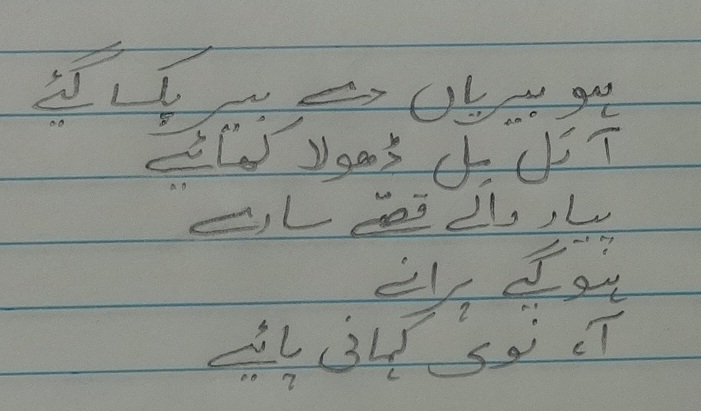 ہو بیریاں دے بیر پکسا گئے
آ رَل مِل ڈھولا کھتائیے
پیار والے قصّے سارے
ہو گیے پرانے
آ، نَوی کہانی پائیے